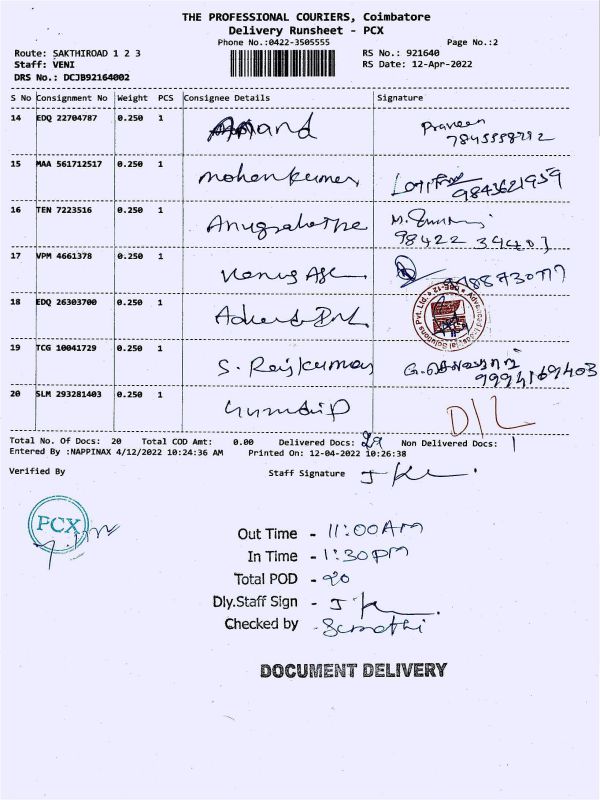 THE PROFESSIONAL COURIERS, Coimbatore
Delivery Runsheet - PCX
Phone No.:0422-3505555 Page No.:2
Route: SAKTHIROAD 1 2 3 RS No.: 921640
Staff: VENI RS Date: 12-Apr-2022
DRS No.: DCJB92164002
S No Consignment No Weight PCS Consignee Details Signature
14 EDQ 22704787 0.250 1 Anand Praveen
15 MAA 561712517 0.250 1 mohankumar
9843621959
16 TEN 7223516 0.250 1
98422 39403
17 VPM 4661378 0.250 1
18 EDQ 26303700 0.250 1
19 TCG 10041729 0.250 1 S. Rajkumar
9994169403
20 SLM 293281403 0.250 1 D/L
Total No. Of Docs: 20 Total COD Amt: 0.00 Delivered Docs: Non Delivered Docs: 1
Entered By :NAPPINAX 4/12/2022 10:24:36 AM Printed On: 12-04-2022 10:26:38
Verified By Staff Signature
PCX
Out Time - 11:00AM
In Time - 1:30pm
Total POD - 20
Dly.Staff Sign -
Checked by -
DOCUMENT DELIVERY